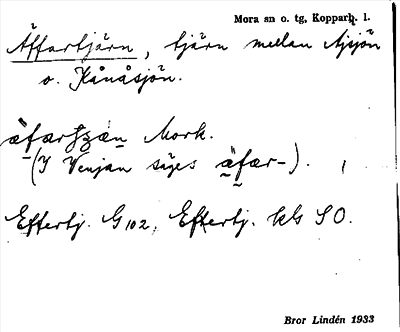 Mora sn o. tg, Kopparb. l.
Äffartjärn, tjärn mellan Ajsjön
o. Kånåsjön.
Mork.
(I Venjan säges äfær-).
Eftertj. G102, Eftertj. kG SO.
Bror Lindén 1933